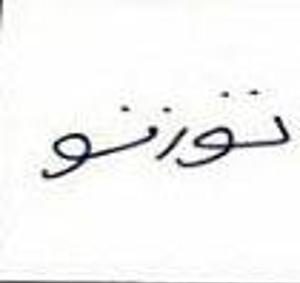 توزنو